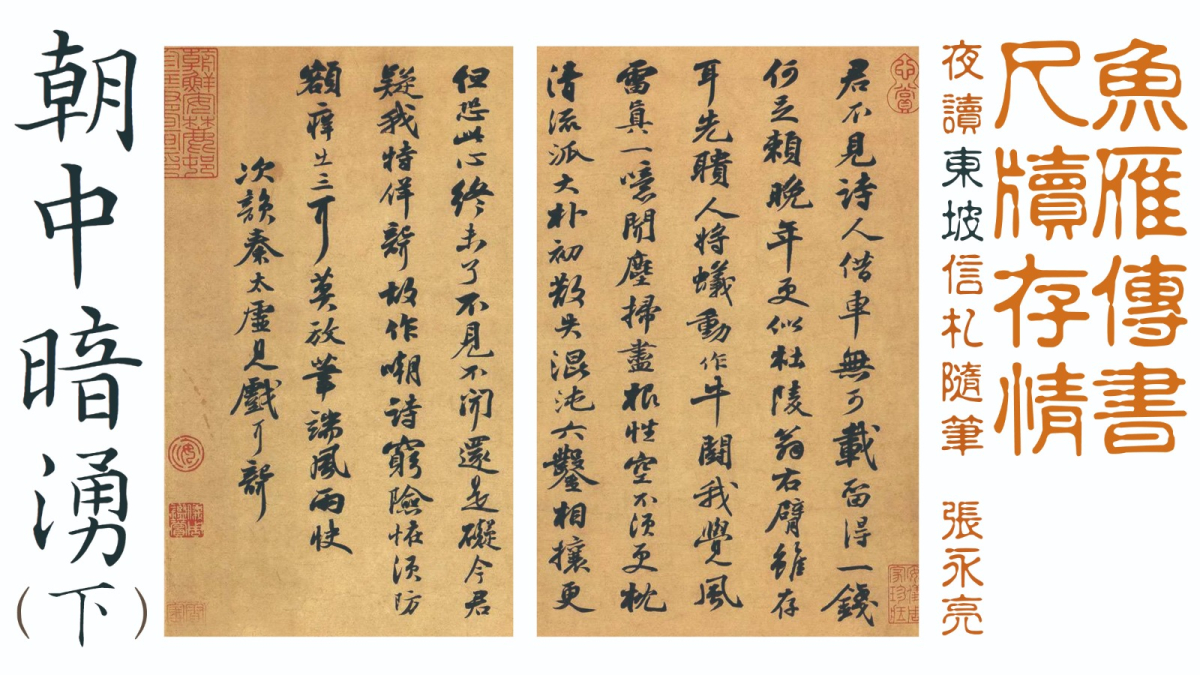 魚雁傳書
尺牘存情
夜讀東坡信札隨筆 張永亮
君不見詩人借車無可載留得一錢
何足賴晚年更似杜陵翁右臂雖存
耳先聵人將蟻動作牛鬪我覺風
雷真一噫聞塵掃盡根性空不須更枕
清流派大朴初散失混沌六鑿相攘更
但恐此心終未了不見不聞還是礙今君
疑我特佯聾故作嘲詩窮險怪須防
額癢出三耳莫放筆端風雨快
次韻秦太虛見戲耳聾
朝中暗湧(下)